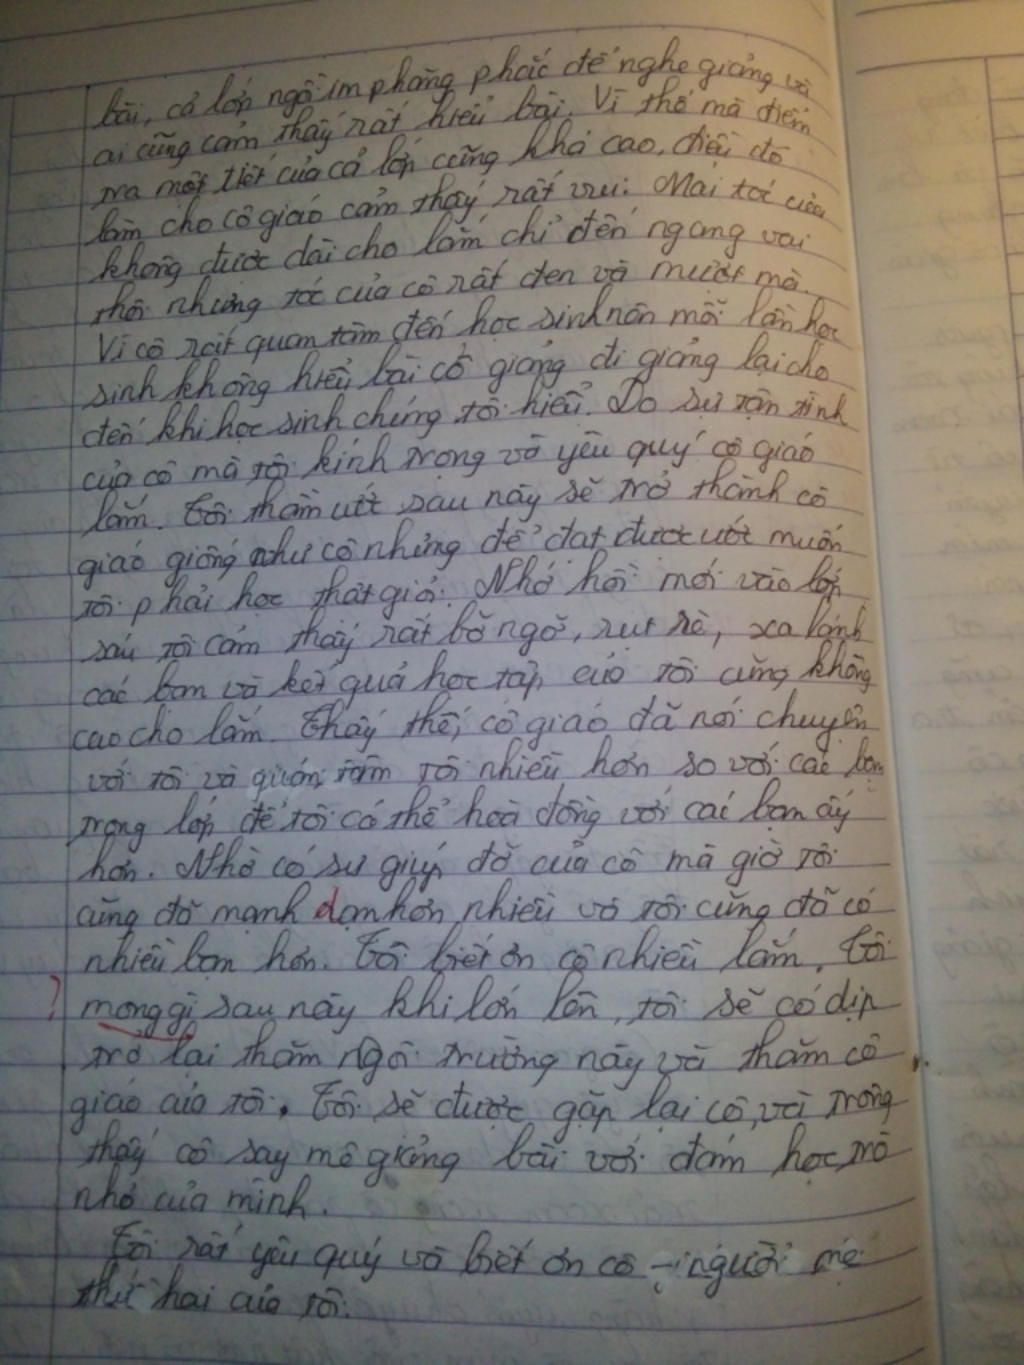 bài, cả lớp ngồi im phăng phắc để nghe giảng và
ai cũng cảm thấy rất hiểu bài. Vì thế mà điểm
tra một tiết của cả lớp cũng khá cao, điều đó
làm cho cô giáo cảm thấy rất vui. Mai tóc của
không được dài cho lắm chỉ đến ngang vai
thôi nhưng tóc của cô rất đen và mượt mà.
Vì cô rất quan tâm đến học sinh nên mỗi lần học
sinh không hiểu bài cô giảng đi giảng lại cho
đến khi học sinh chúng tôi hiểu. Do sự tận tình
của cô mà tôi kính trọng và yêu quý cô giáo
lắm. Tôi thầm ước sau này sẽ trở thành cô
giáo giống như cô nhưng để đạt được ước muốn
tôi phải học thật giỏi. Nhớ hồi mới vào lớp
sáu tôi cảm thấy rất bỡ ngỡ, rụt rè, xa lánh
các bạn và kết quả học tập của tôi cũng không
cao cho lắm. Thấy thế, cô giáo đã nói chuyện
với tôi và quan tâm tôi nhiều hơn so với các bạn
trong lớp để tôi có thể hoà đồng với các bạn ấy
hơn. Nhờ có sự giúp đỡ của cô mà giờ tôi
cũng đã mạnh dạn hơn nhiều và tôi cũng đã có
nhiều bạn hơn. Tôi biết ơn cô nhiều lắm. Tôi
? mong gì sau này khi lớn lên, tôi sẽ có dịp
trở lại thăm ngôi trường này và thăm cô
giáo của tôi. Tôi sẽ được gặp lại cô, và trông
thấy cô say mê giảng bài với đám học trò
nhỏ của mình.
Tôi rất yêu quý và biết ơn cô - người mẹ
thứ hai của tôi.